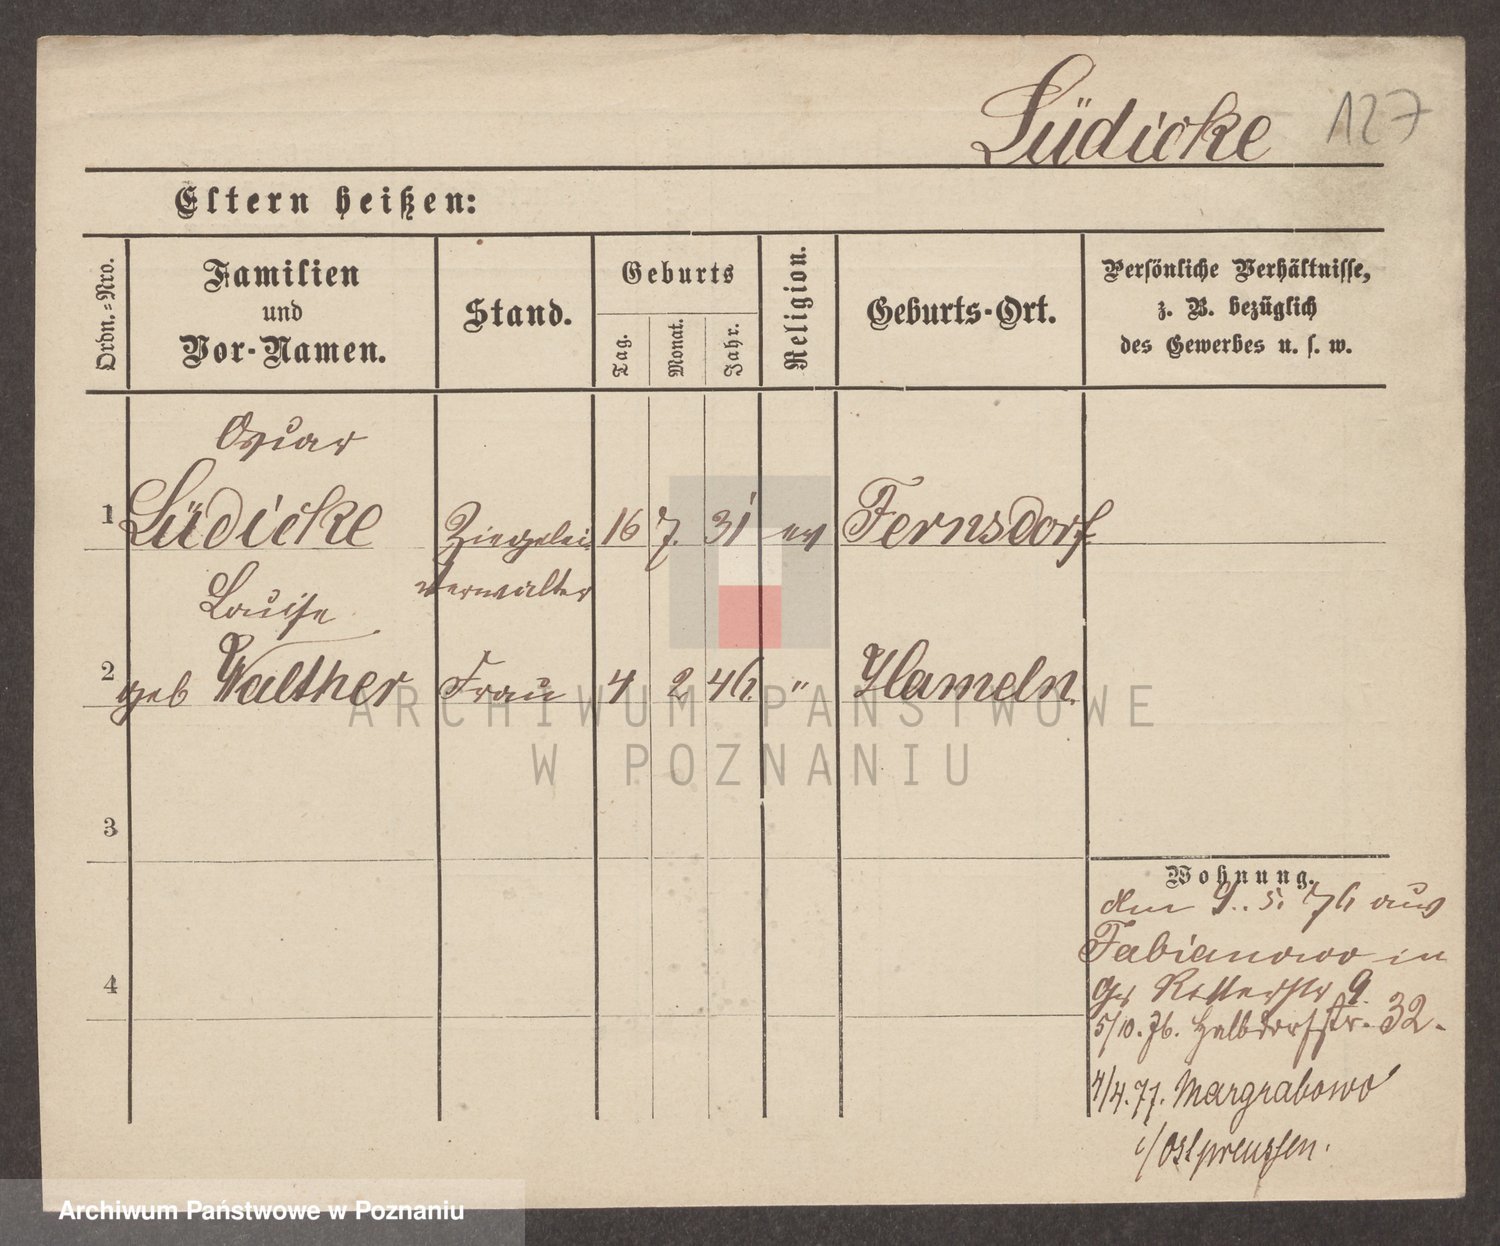 Lüdicke 127
Eltern heißen:
Ordn.-Nro.
Familien
und
Vor-Namen.
Stand.
Geburts
Tag.
Monat.
Jahr.
Religion.
Geburts-Ort.
Persönliche Verhältnisse,
z. B. bezüglich
des Gewerbes u. s. w.
Oscar
1 Lüdicke Ziegelei 16 7. 31 ev Fernsdorf
verwalter
Louise
2 geb Walther Frau 4 2 46 " Hameln
3
4
Wohnung.
den 9. 5. 76 aus
Fabianowo in
Gr Ritterstr 9.
5/10.76. Halbdorfstr. 32.
4/4.77. Margrabowo
i/Ostpreussen.
ARCHIWUM PAŃSTWOWE
W POZNANIU
Archiwum Państwowe w Poznaniu